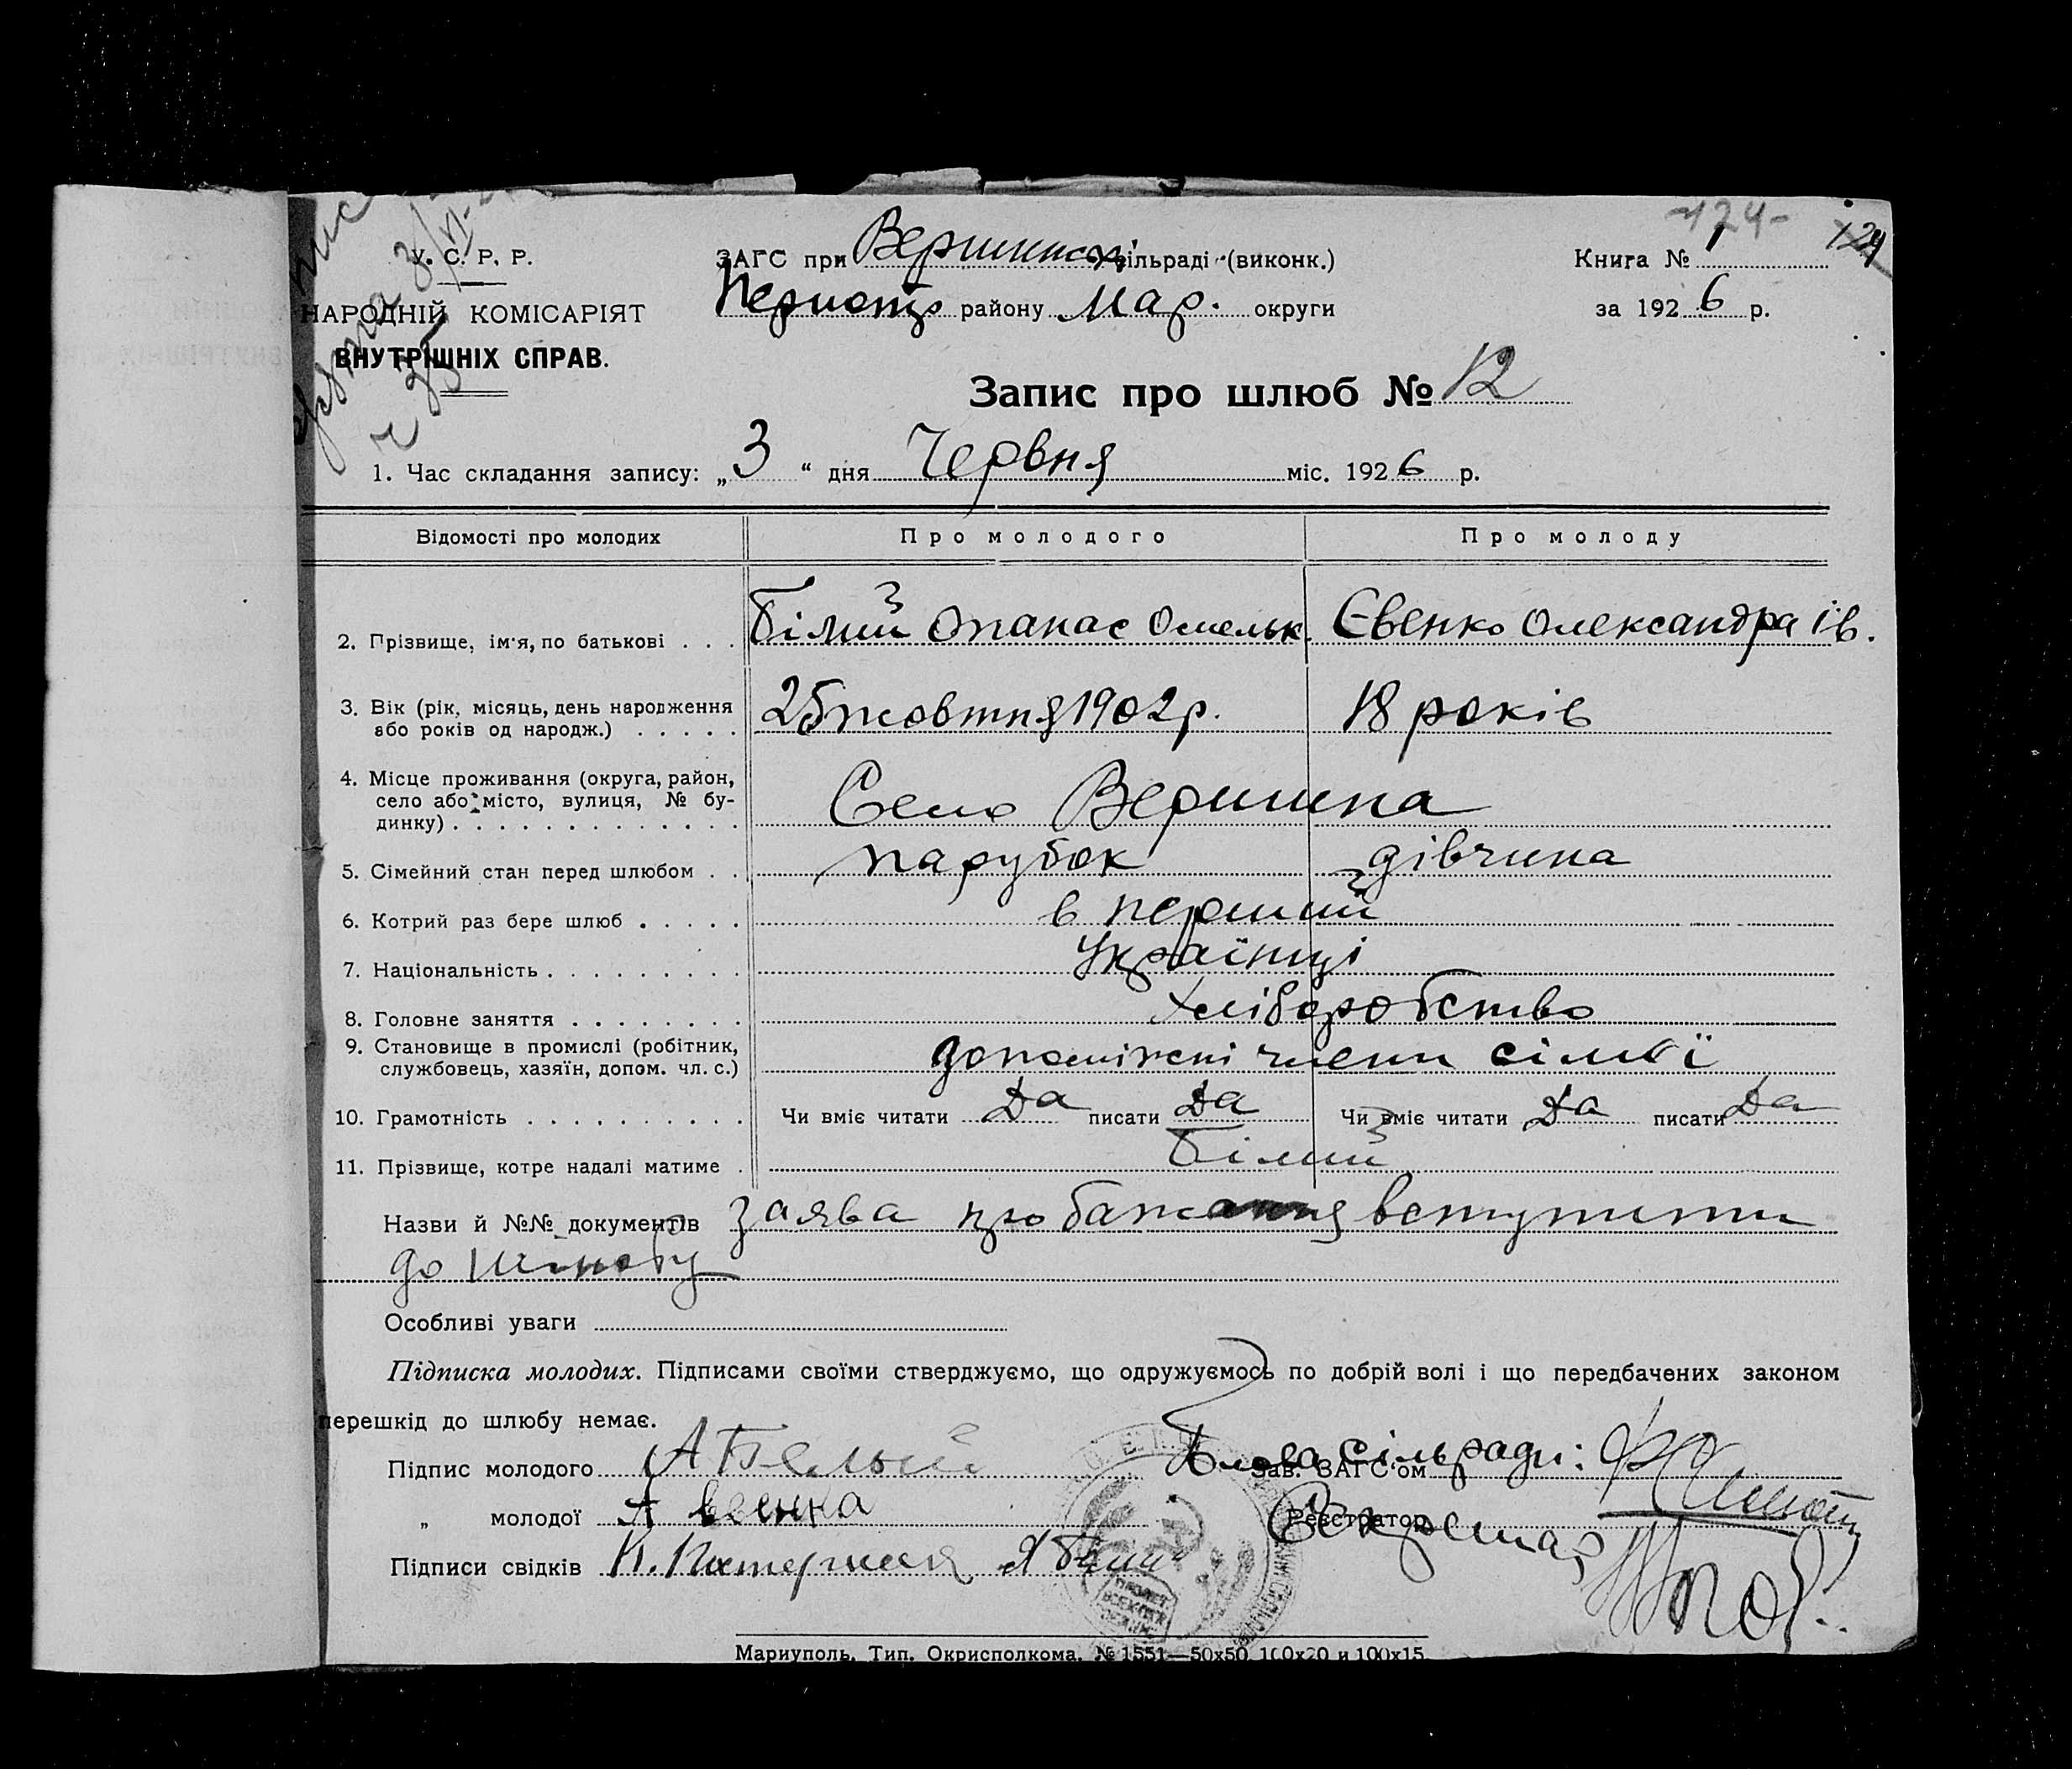 -124-
124
У. С. Р. Р.
ЗАГС при Вершинск сільраді (виконк.)
Книга № 1
НАРОДНІЙ КОМІСАРІЯТ
району Мар. округи
за 1926 р.
ВНУТРІШНІХ СПРАВ.
Запис про шлюб № 12
1. Час складання запису: „3“ дня Червня міс. 1926 р.
Відомості про молодих Про молодого Про молоду
2. Прізвище, ім'я, по батькові . . . Білий Опанас Омельк. Євенко Олександра Ів.
3. Вік (рік, місяць, день народження
або років од народж.) . . . . . 25 жовтня 1902 р. 18 років
4. Місце проживання (округа, район,
село або місто, вулиця, № бу-
динку) . . . . . . . . . . . . . Село Вершина
5. Сімейний стан перед шлюбом . . парубок дівчина
6. Котрий раз бере шлюб . . . . . в перший
7. Національність . . . . . . . . . Українці
8. Головне заняття . . . . . . . . Хліборобство
9. Становище в промислі (робітник,
службовець, хазяїн, допом. чл. с.) допоміжні члени сімьї
10. Грамотність . . . . . . . . . . Чи вміє читати Да писати Да Чи вміє читати Да писати Да
11. Прізвище, котре надалі матиме . Білий
Назви й №№ документів заява про бажання вступити
до шлюбу
Особливі уваги
Підписка молодих. Підписами своїми стверджуємо, що одружуємось по добрій волі і що передбачених законом
перешкід до шлюбу немає.
Підпис молодого А Белый Зав. ЗАГС'ом Голова сільради:
„ молодої А Реєстратор Секретар
Підписи свідків
Мариуполь, Тип. Окрисполкома, № 1551—50х50 100х20 и 100х15.